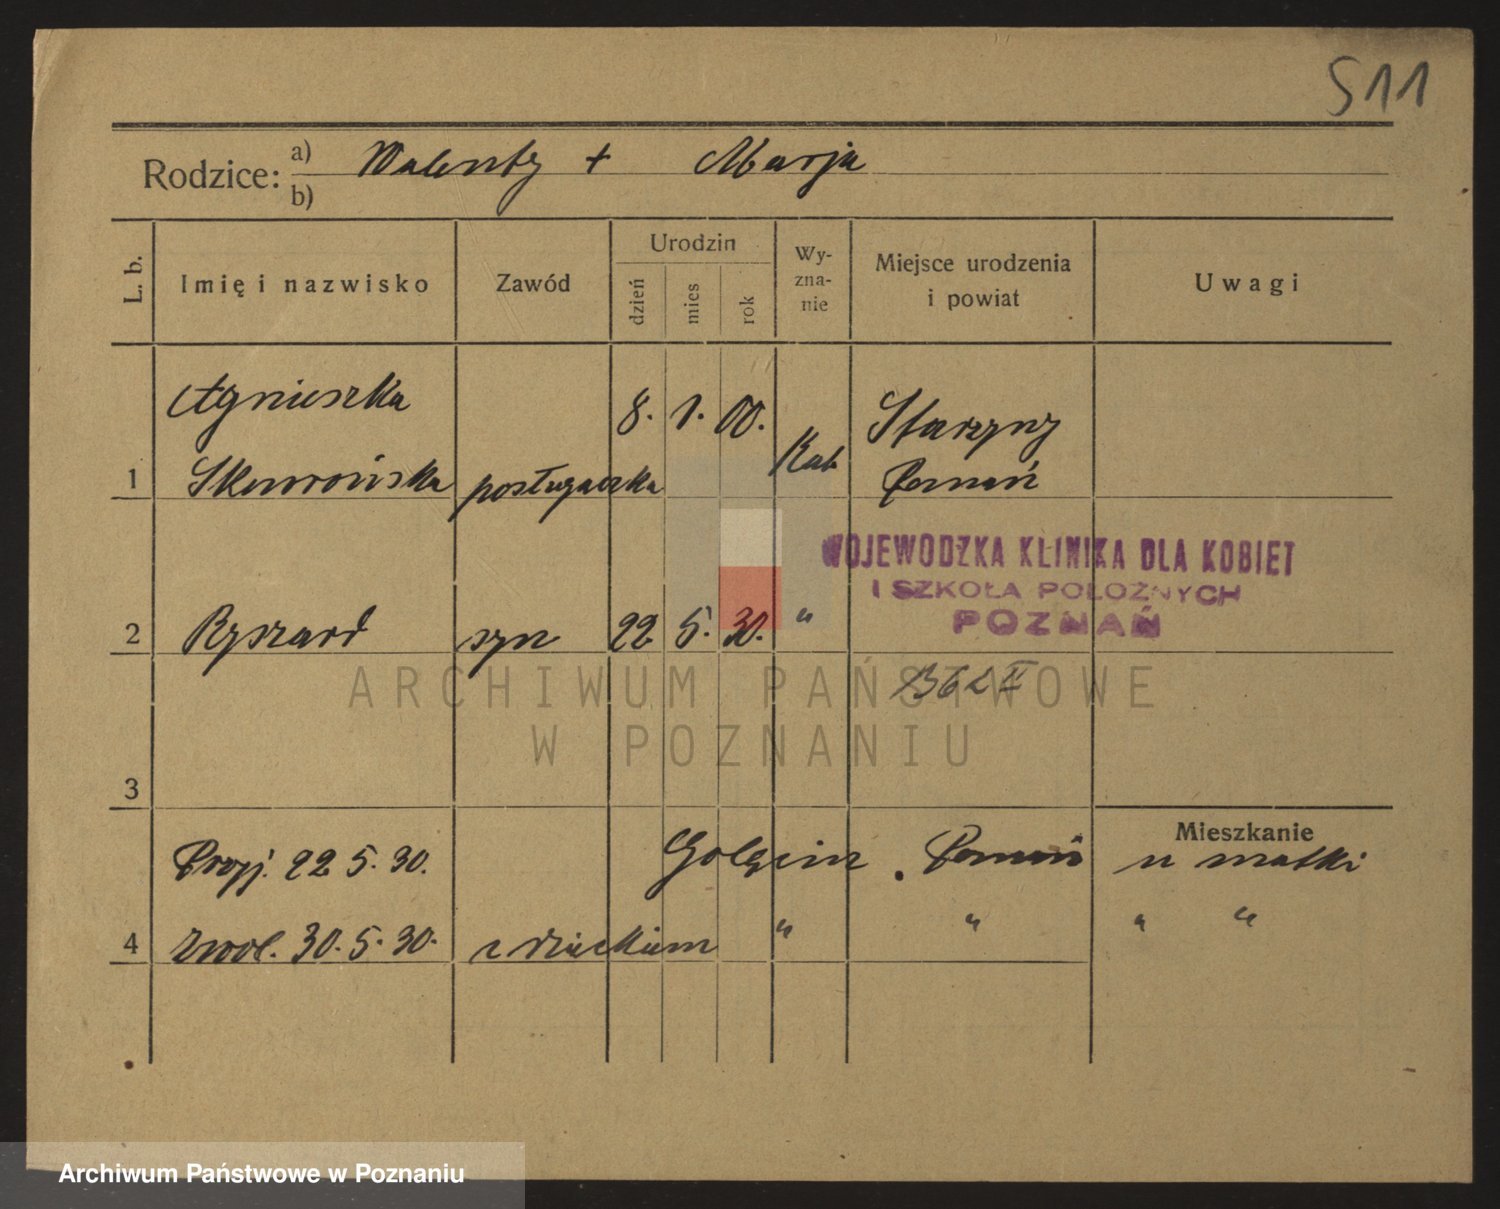 511
Rodzice: a) Walenty + Marja
b)
L. b. Imię i nazwisko Zawód Urodzin dzień mies rok Wy-zna-nie Miejsce urodzenia i powiat Uwagi
Agnieszka 8. 1. 00. Starzyny
1 Skowrońska posługaczka Kat Poznań
WOJEWODZKA KLINIKA DLA KOBIET
I SZKOŁA POŁOŻNYCH
POZNAŃ
2 Ryszard syn 22 5. 30. "
ARCHIWUM PAŃSTWOWE
W POZNANIU
3
Mieszkanie
Przyj. 22 5. 30. Golęcin . Poznań u matki
4 zwol. 30. 5. 30. z dzieckiem " " " "
Archiwum Państwowe w Poznaniu